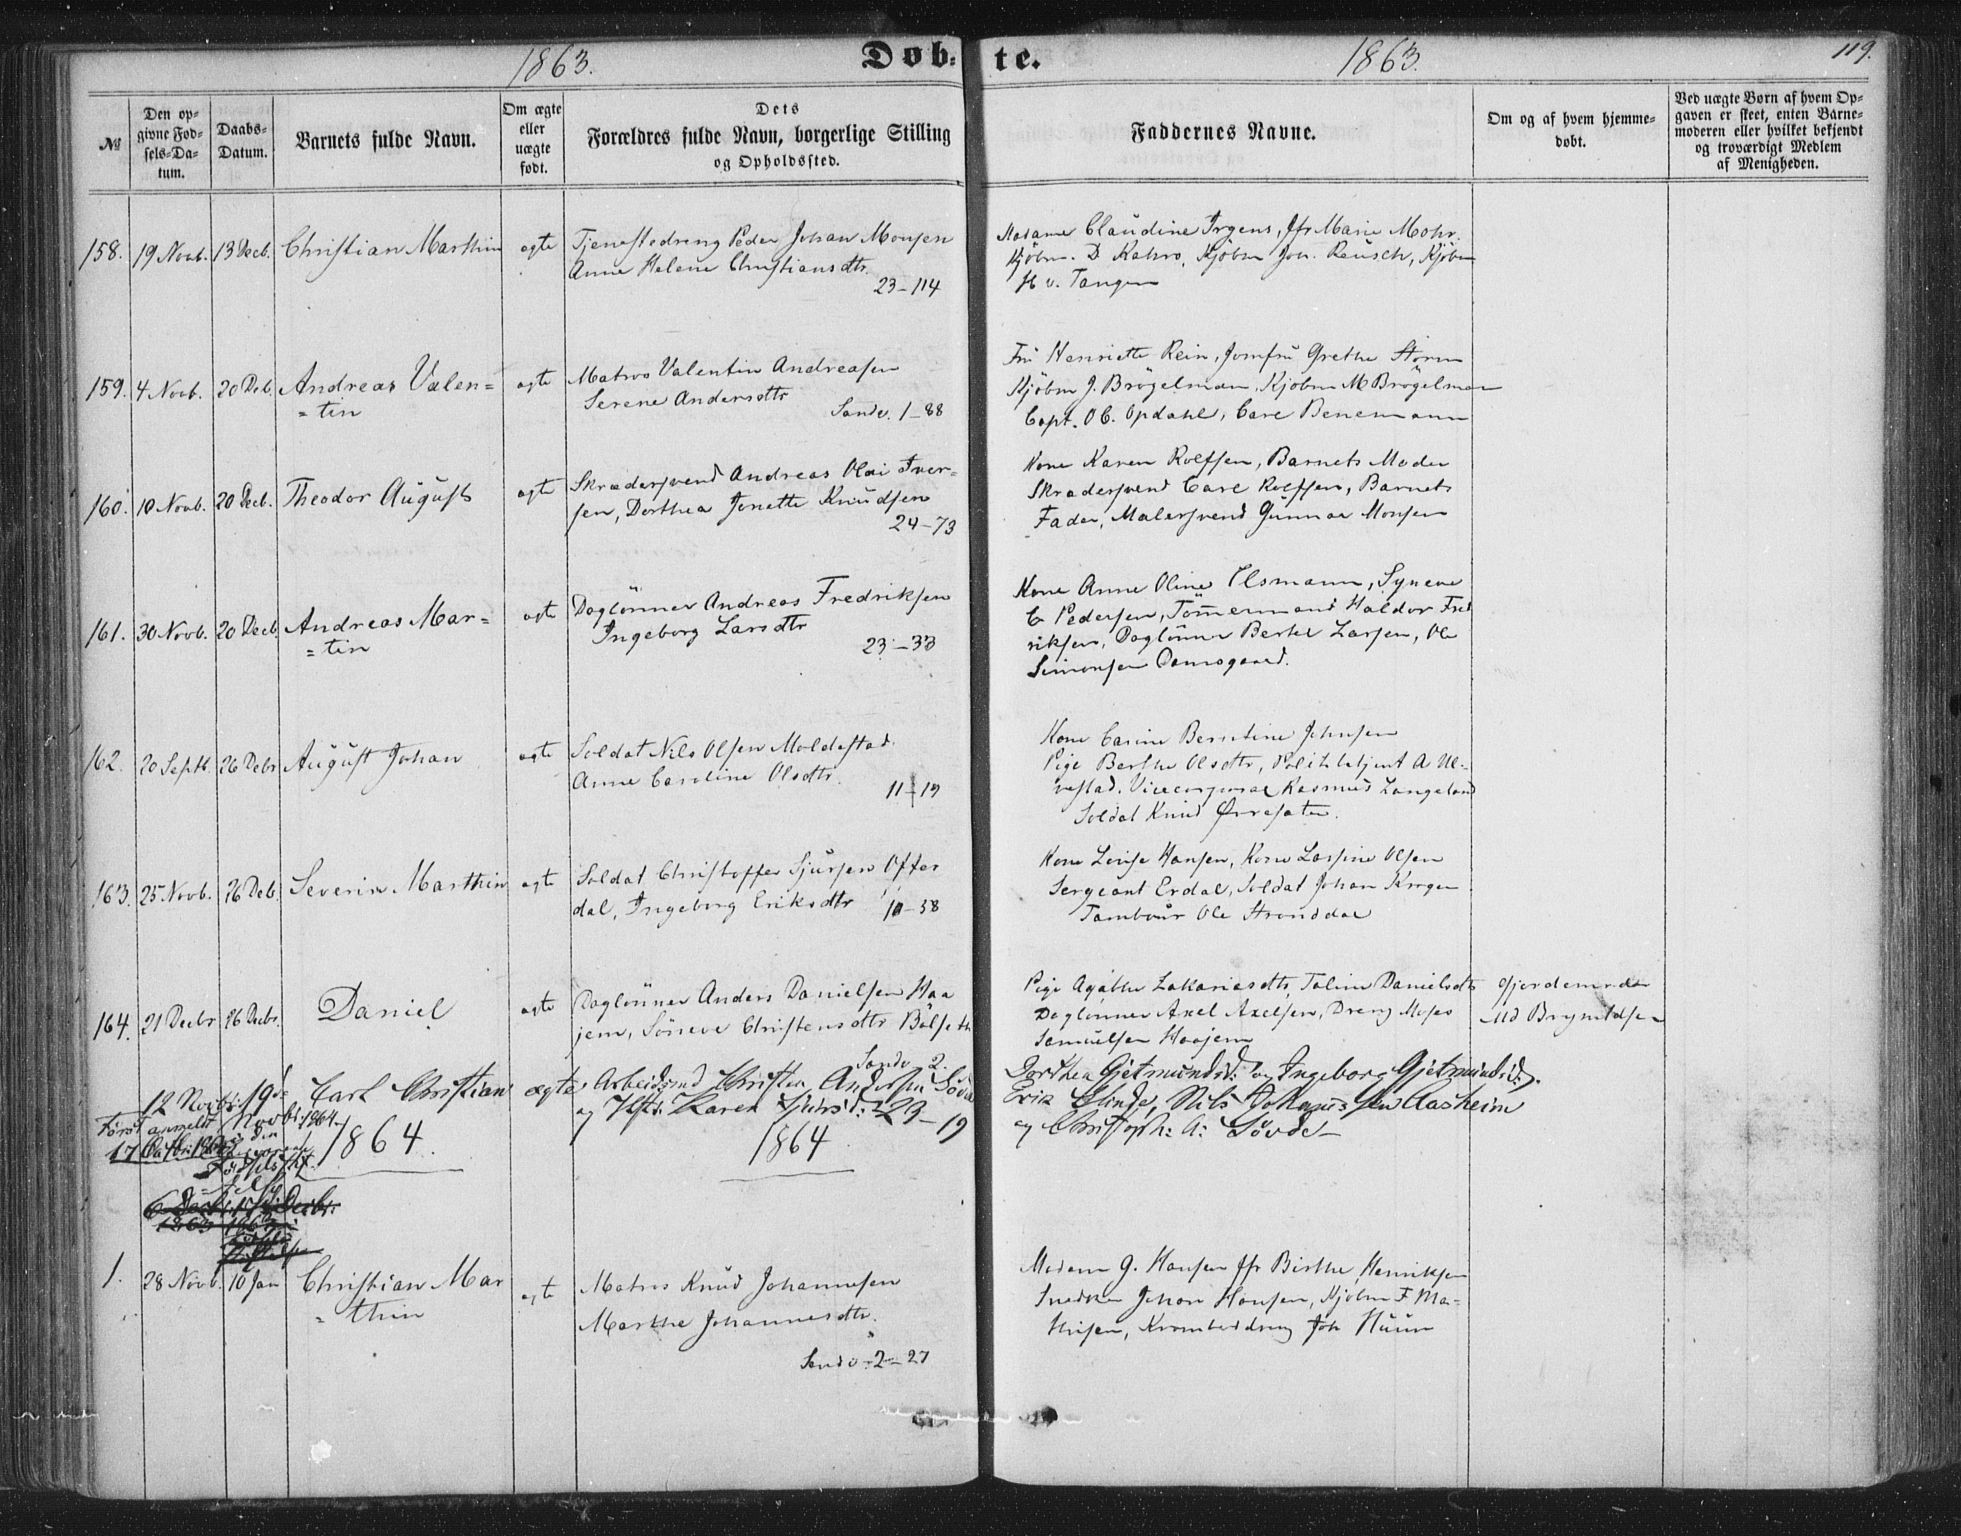 1863. Døb-te. 1863. 119.
№
Den opgivne Fødsels-Datum.
Daabs-Datum.
Barnets fulde Navn.
Om ægte eller uægte født.
Dets Forældres fulde Navn, borgerlige Stilling og Opholdssted.
Faddernes Navne.
Om og af hvem hjemmedøbt.
Ved uægte Børn af hvem Opgaven er skeet, enten Barnemoderen eller hvilket bekjendt og troværdigt Medlem af Menigheden.
158. 19 Novb. 13 Decb. Christian Marthin egte Tjenestedreng Peder Johan Monsen
Anne Helene Christiansdtr.
23-114
Madame Claudine Irgens, Jfr Marie Mohr.
Kjøbm. D Kahrs, Kjøbm Joh. Reusch, Kjøbm
H v. Tangen
159. 4 Novb. 20 Deb. Andreas Valen=
=tin
egte Matros Valentin Andreasen
Serene Andersdtr
Sandv. 1-88
Fru Henriette Rein, Jomfru Grethe Storm
Kjöbm J. Brögelman, Kjøbm M Brögelman
Capt. O C. Opdahl, Carl Benemann
160. 10 Novb. 20 Decb. Theodor August egte Skrædersvend Andreas Olai Iver-
sen, Dorthea Jonette Knudsen
24-73
Kone Karen Rolfsen, Barnets Moder
Skrædersvend Carl Rolfsen, Barnets
Fader, Malersvend Gunnar Monsen
161. 30 Novb. 20 Decb Andreas Mar=
=tin
egte Daglönner Andreas Fredriksen
Ingeborg Larsdtr
23-33
Kone Anne Oline Elsmann, Syneve
C Pedersen, Tömmermand Haldor Fred
riksen, Daglönner Bertel Larsen, Ole
Simonsen Damsgaard.
162. 20 Septb. 26 Debr August Johan egte Soldat Nils Olsen Moldestad
Anne Caroline Olsdtr.
11-19
Kone Carine Berntine Johnsen
Pige Berthe Olsdtr, Politibetjent A Ul-
vestad. Vicecorporal Rasmus Langeland
Soldat Knud
163. 25 Novb. 26 Deb. Severin Marthin egte Soldat Christoffer Sjursen Ofter
dal, Ingeborg Eriksdtr 10-58
Kone Lovise Hansen, Kone Lassine Olsen
Sergeant Erdal, Soldat Johan Kroger
Tambour Ole Stranddal
164. 21 Decbr 26 Decbr. Daniel egte Daglönner Anders Danielsen Haa
jem, Söneve Christensdtr Bölseth
Sandv 2.
Pige Agathe Zakariasdtr, Taline Danielsdtr
Daglönner Axel Axelsen, Dreng Moses
Samuelsen Haajem
Gjordemoder
Md Brynildsen
12 Novbr. 19de Novbr. 1864 Carl Christian ægte Arbeidsmd Christen Andersen Sövde
og Hst. Karen Sjursd: 23-19
Dorthea Gjetmundsd: og Ingeborg Gjetmundsd:
Erik Slinde, Nils Johannessen Aasheim
og Christoph: A: Sövde-
Først anmeldt
17
1864. 1864
6 Decbr.
1863 1863
1. 28 Novb. 10 Jan Christian Mar
=thin
egte Matros Knud Johannesen
Marthe Johannesdtr.
Sandv-2-27
Madam G. Hansen Jfr Birthe Henriksen
Snedker Johan Hansen, Kjøbm F. Ma-
thisen, Krambeddreng Joh Huun